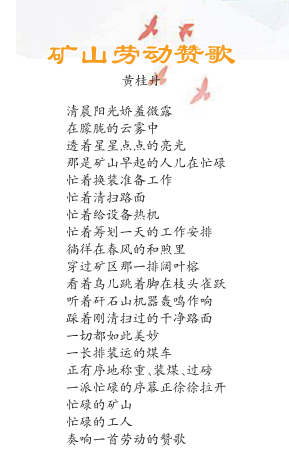 矿山劳动赞歌
黄桂丹
清晨阳光娇羞微露
在朦胧的云雾中
透着星星点点的亮光
那是矿山早起的人儿在忙碌
忙着换装准备工作
忙着清扫路面
忙着给设备热机
忙着筹划一天的工作安排
徜徉在春风的和煦里
穿过矿区那一排阔叶榕
看着鸟儿跳着脚在枝头雀跃
听着矸石山机器轰鸣作响
踩着刚清扫过的干净路面
一切都如此美妙
一长排装运的煤车
正有序地称重、装煤、过磅
一派忙碌的序幕正徐徐拉开
忙碌的矿山
忙碌的工人
奏响一首劳动的赞歌